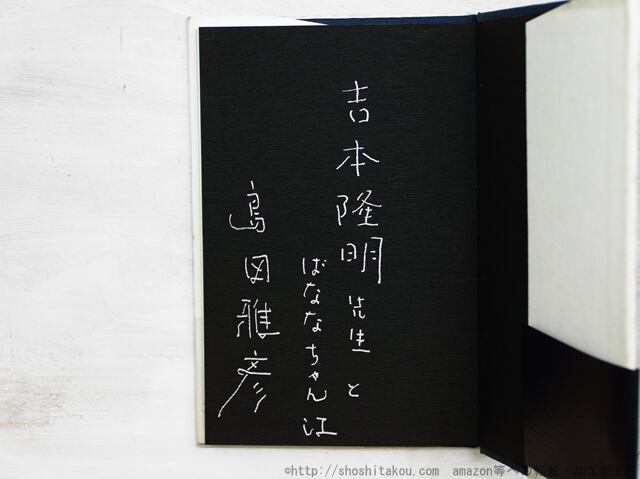 吉本隆明先生と
ばななちゃん江
島田雅彦
©http://shoshitakou.com amazon等への転載・加工禁止